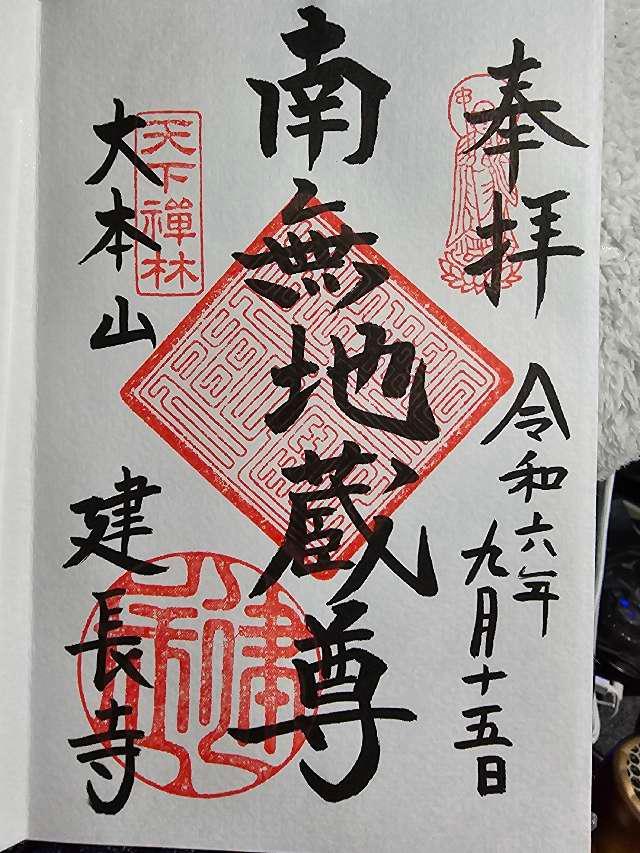 奉拝
令和六年
九月十五日
南無地蔵尊
天下禅林
大本山
建長寺